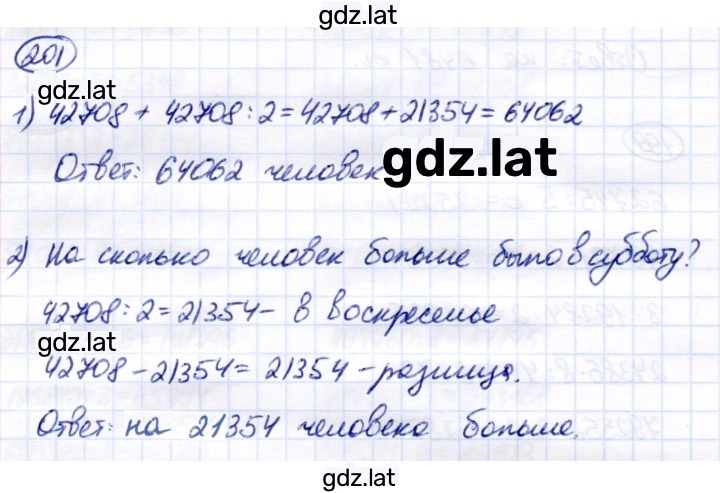 gdz.lat
201
gdz.lat
1) 42708 + 42708 : 2 = 42708 + 21354 = 64062
Ответ: 64062 человек
gdz.lat
2) На сколько человек больше было в субботу?
42708 : 2 = 21354 - в воскресенье
gdz.lat
42708 - 21354 = 21354 - разница.
Ответ: на 21354 человека больше.
gdz.lat